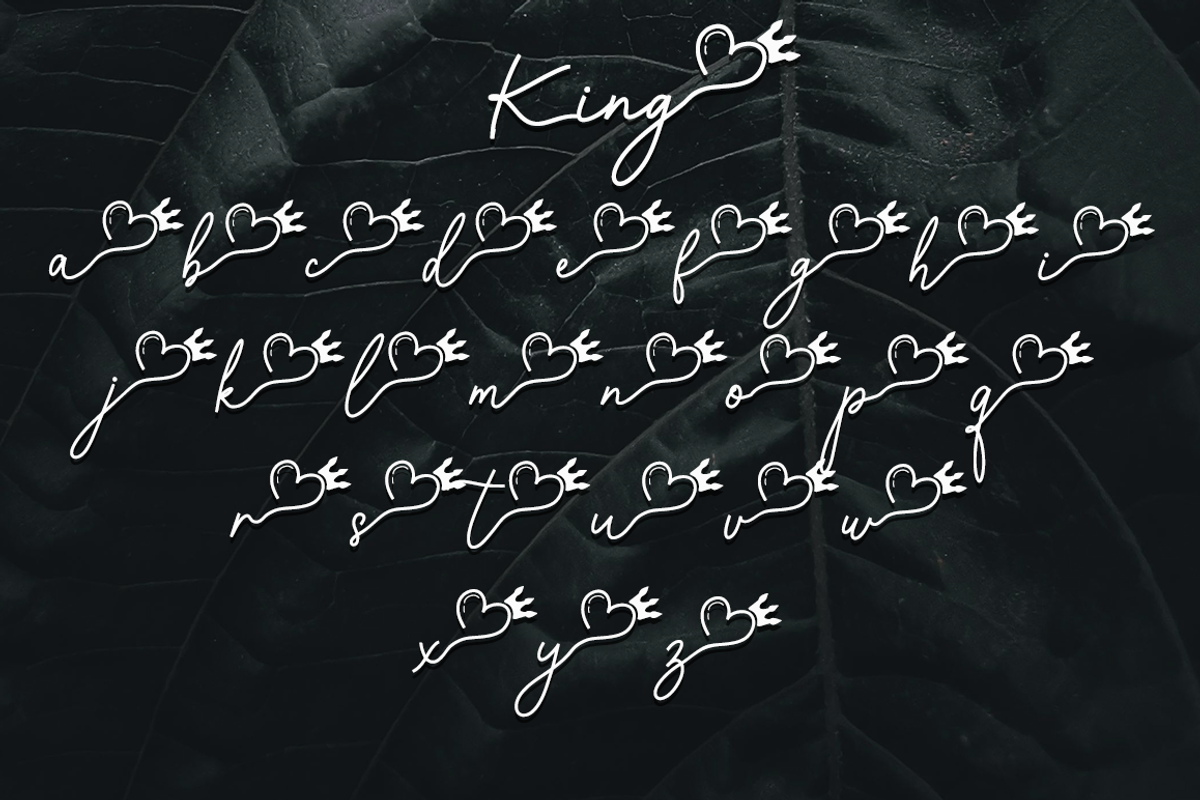 King
a b c d e f g h i
j k l m n o p q
r s t u v w
x y z